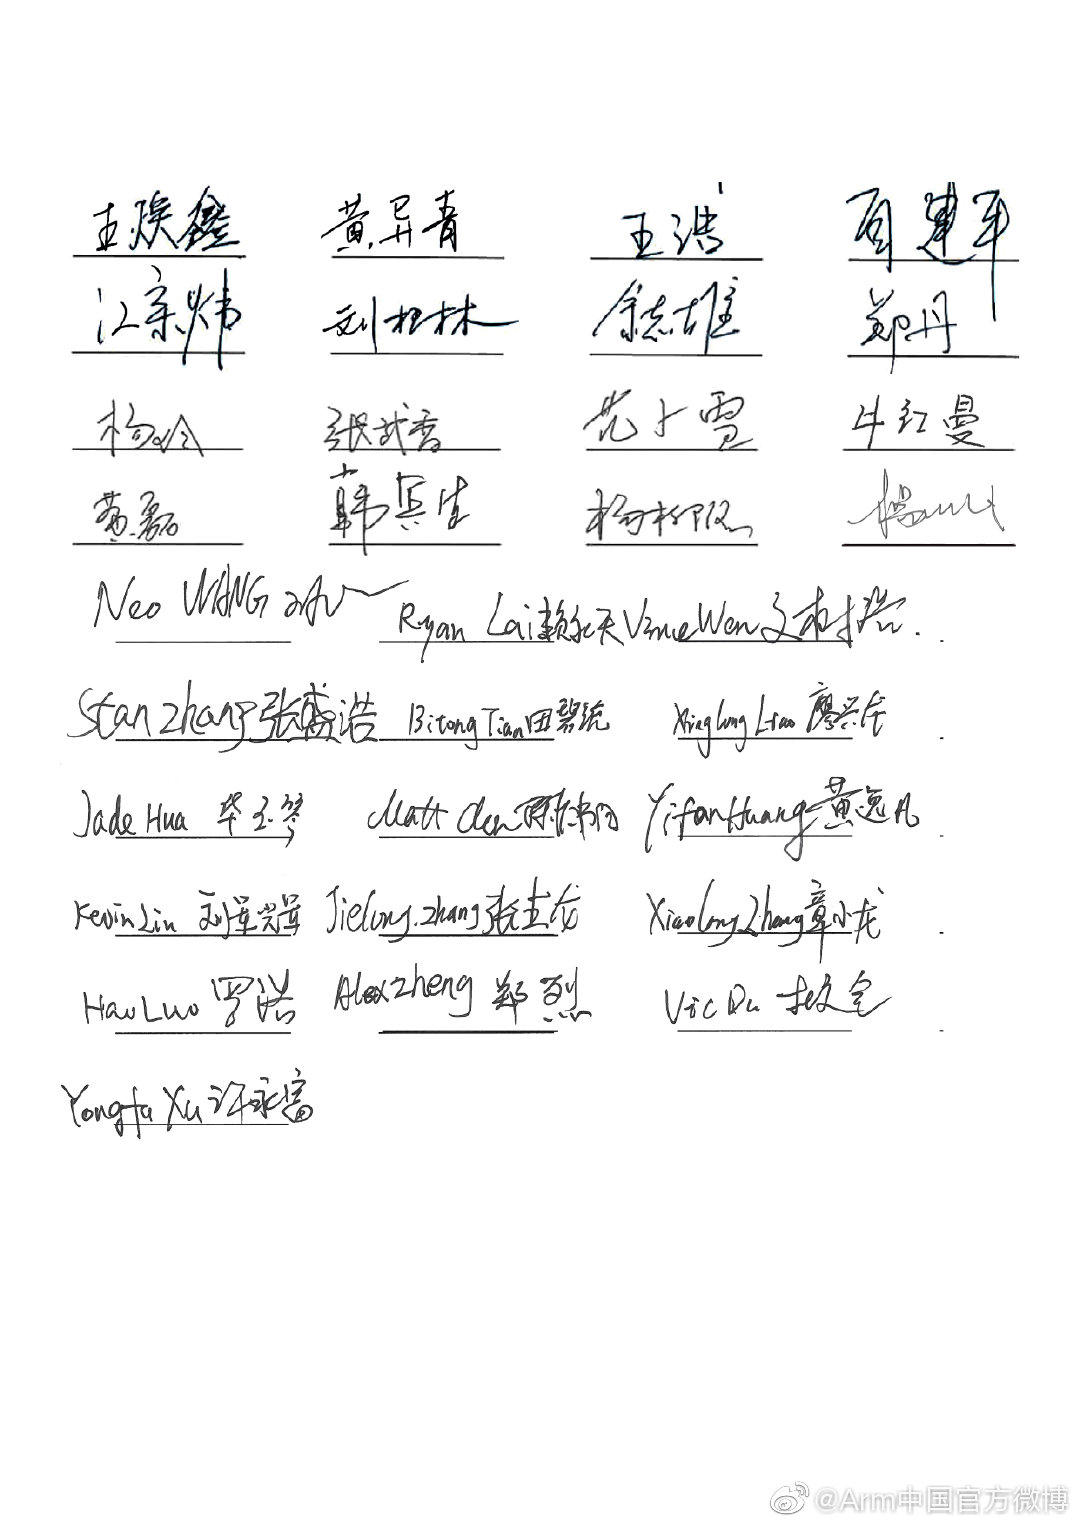 王焕鑫 黄异青 王浩 建军
江宗炜 刘 林 余志雄 郑丹
杨 张武香 花小雪 牛红曼
黄磊 韩宾生 杨柳 杨
Neo WANG Ryan Lai 赖 天 Vince Wen 文
Stan Zhang 张盛浩 Bitong Tian 田碧 Xinglong Liao 廖兴龙
Jade Hua 华玉琴 Matt Chen 陈 Yifan Huang 黄逸凡
Kevin Liu 刘 Jielong.zhang 张杰龙 Xiaolong Zhang 章小龙
Hao Luo 罗浩 Alex Zheng 郑烈 Vic Du
Yongfu Xu 许永富
@Arm中国官方微博